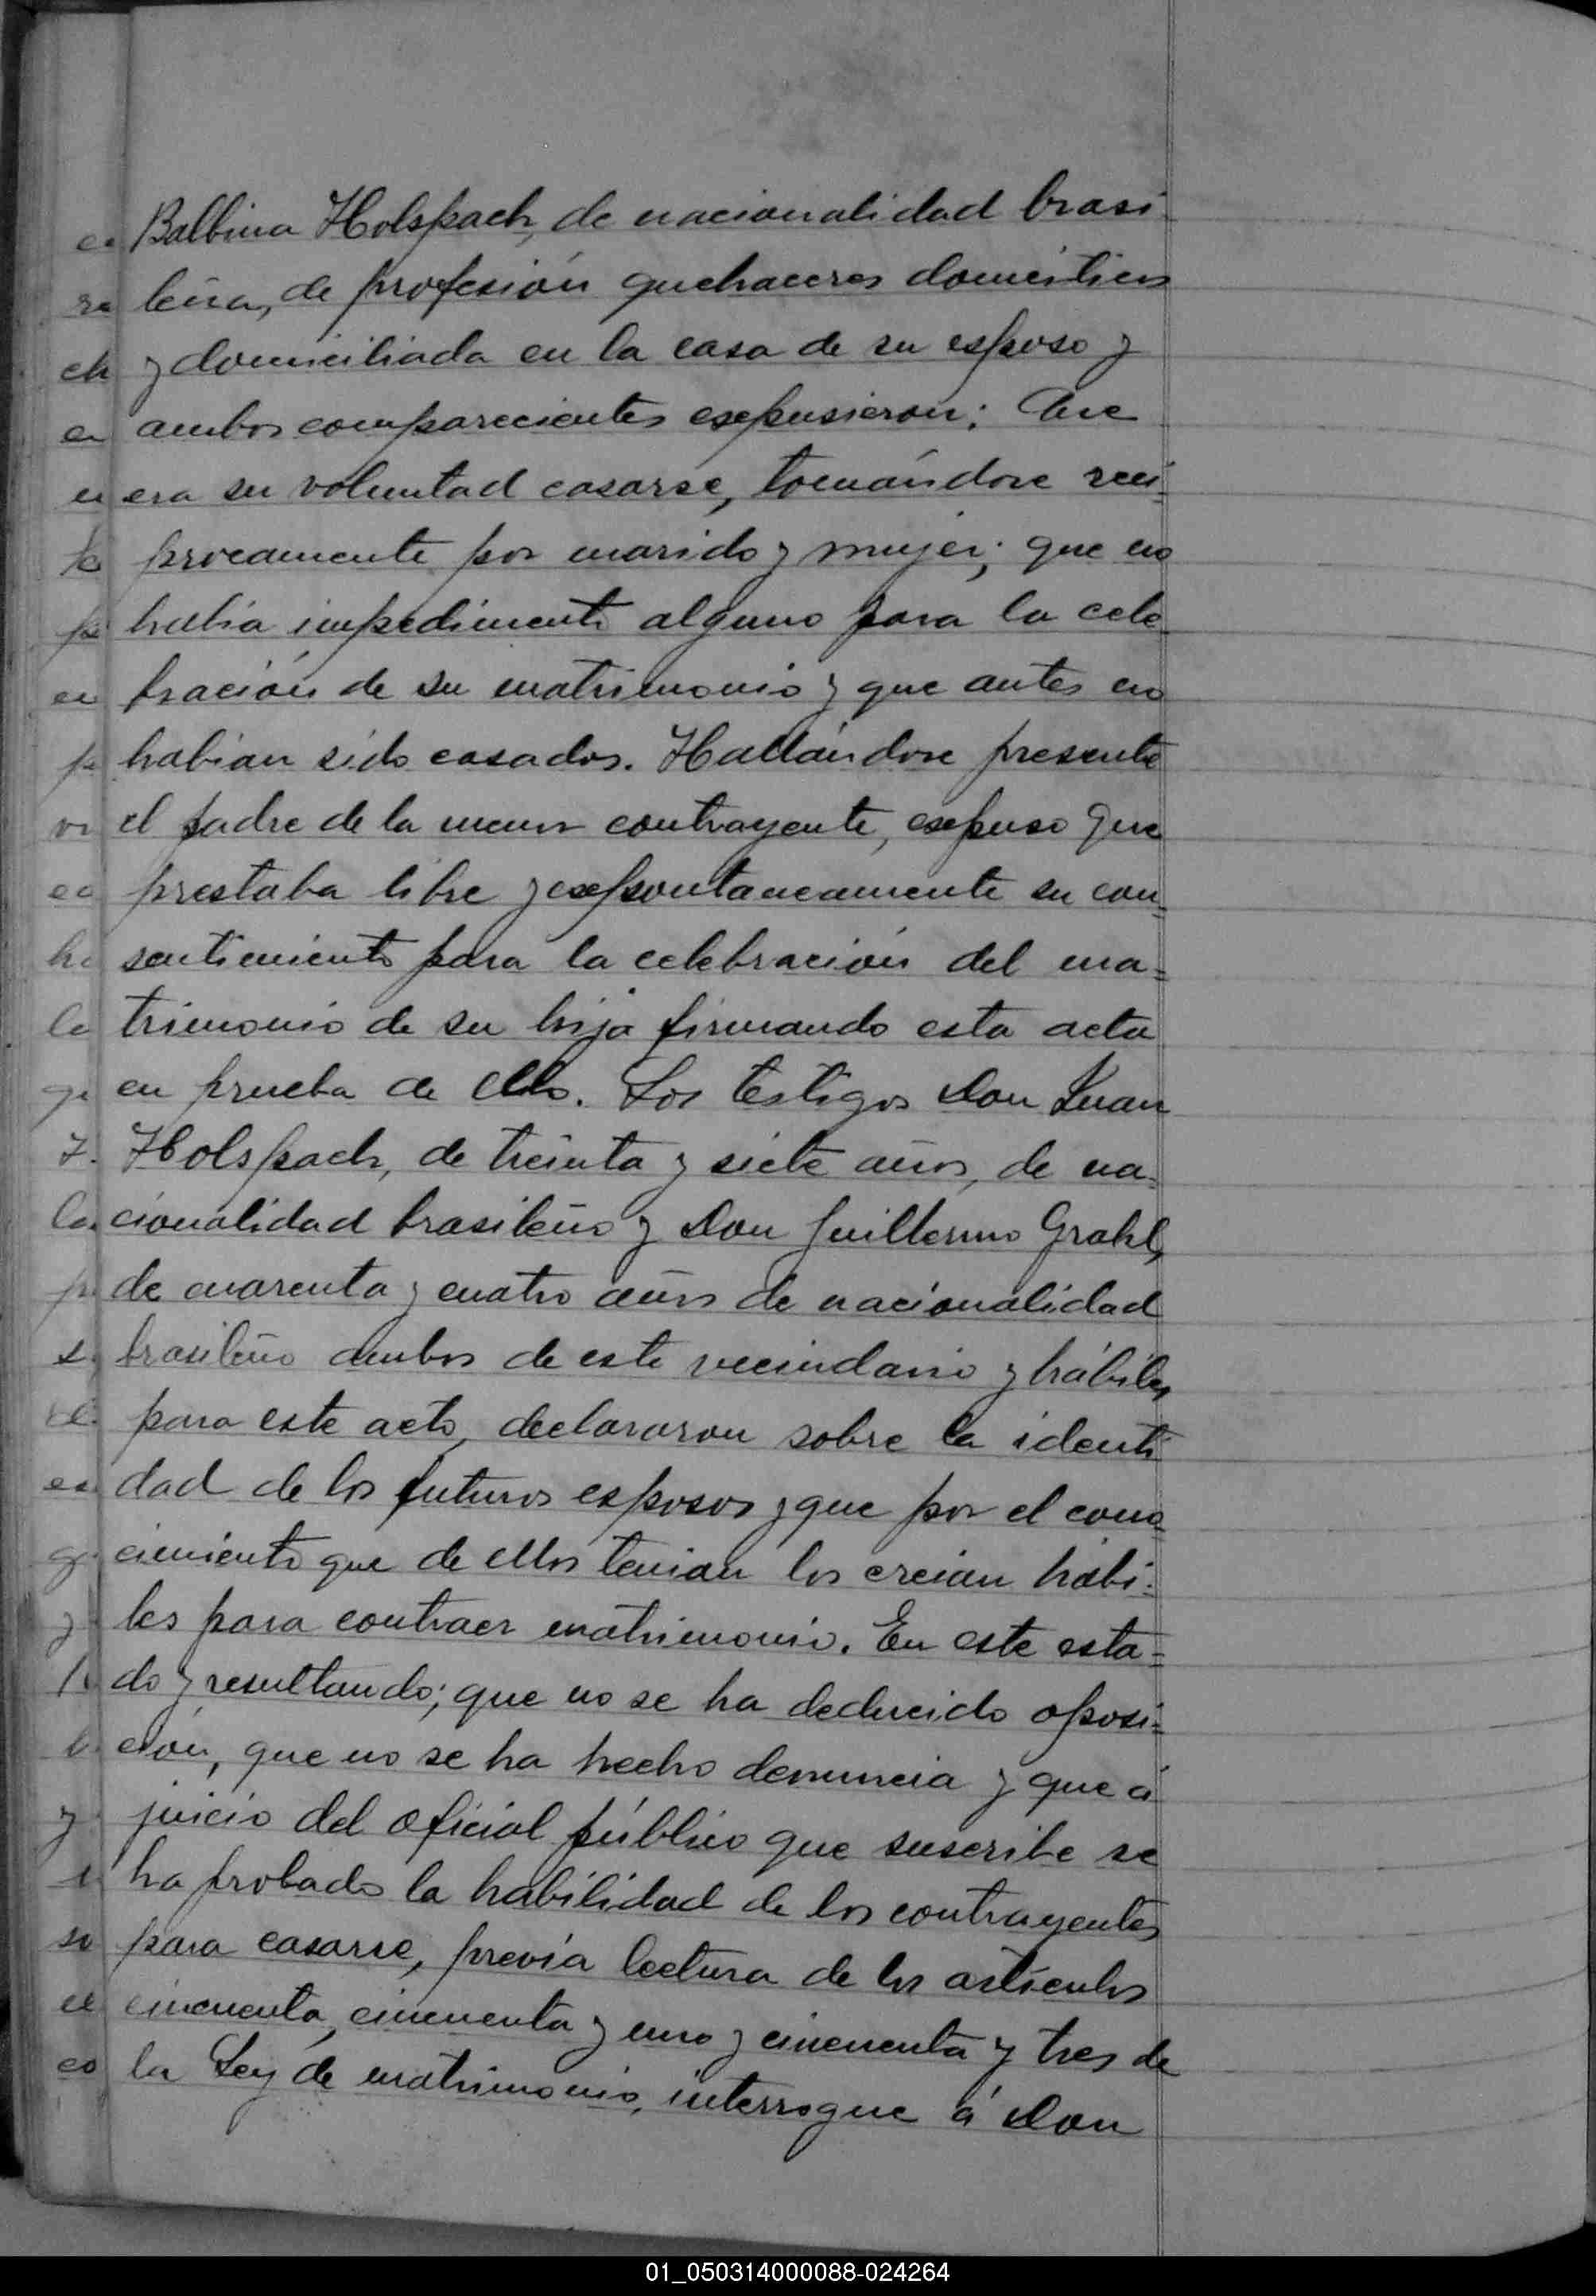 Balbina Holspach, de nacionalidad brasi-
leña, de profesión quehaceres domésticos
y domiciliada en la casa de su esposo y
ambos comparecientes expusieron: Que
era su voluntad casarse, tomándose reci-
procamente por marido y mujer; que no
había impedimento alguno para la cele-
bración de su matrimonio y que antes no
habían sido casados. Hallándose presente
el padre de la menor contrayente, expuso que
prestaba libre y expontaneamente su con-
sentimiento para la celebración del ma-
trimonio de su hija firmando esta acta
en prueba de ello. Los testigos Don Juan
Holspach, de treinta y siete años, de na-
cionalidad brasileño y Don Guillermo Grahl,
de cuarenta y cuatro años de nacionalidad
brasileño ambos de este vecindario y hábiles
para este acto, declararon sobre la identi
dad de los futuros esposos y que por el cono
cimiento que de ellos tenian los creian hábi-
les para contraer matrimonio. En este esta-
do y resultando; que no se ha deducido oposi-
ción, que no se ha hecho denuncia y que á
juicio del oficial público que suscribe se
ha probado la habilidad de los contrayentes
para casarse, previa lectura de los artículos
cincuenta, cincuenta y uno y cincuenta y tres de
la Ley de matrimonio, interrogue á Don
01_050314000088-024264